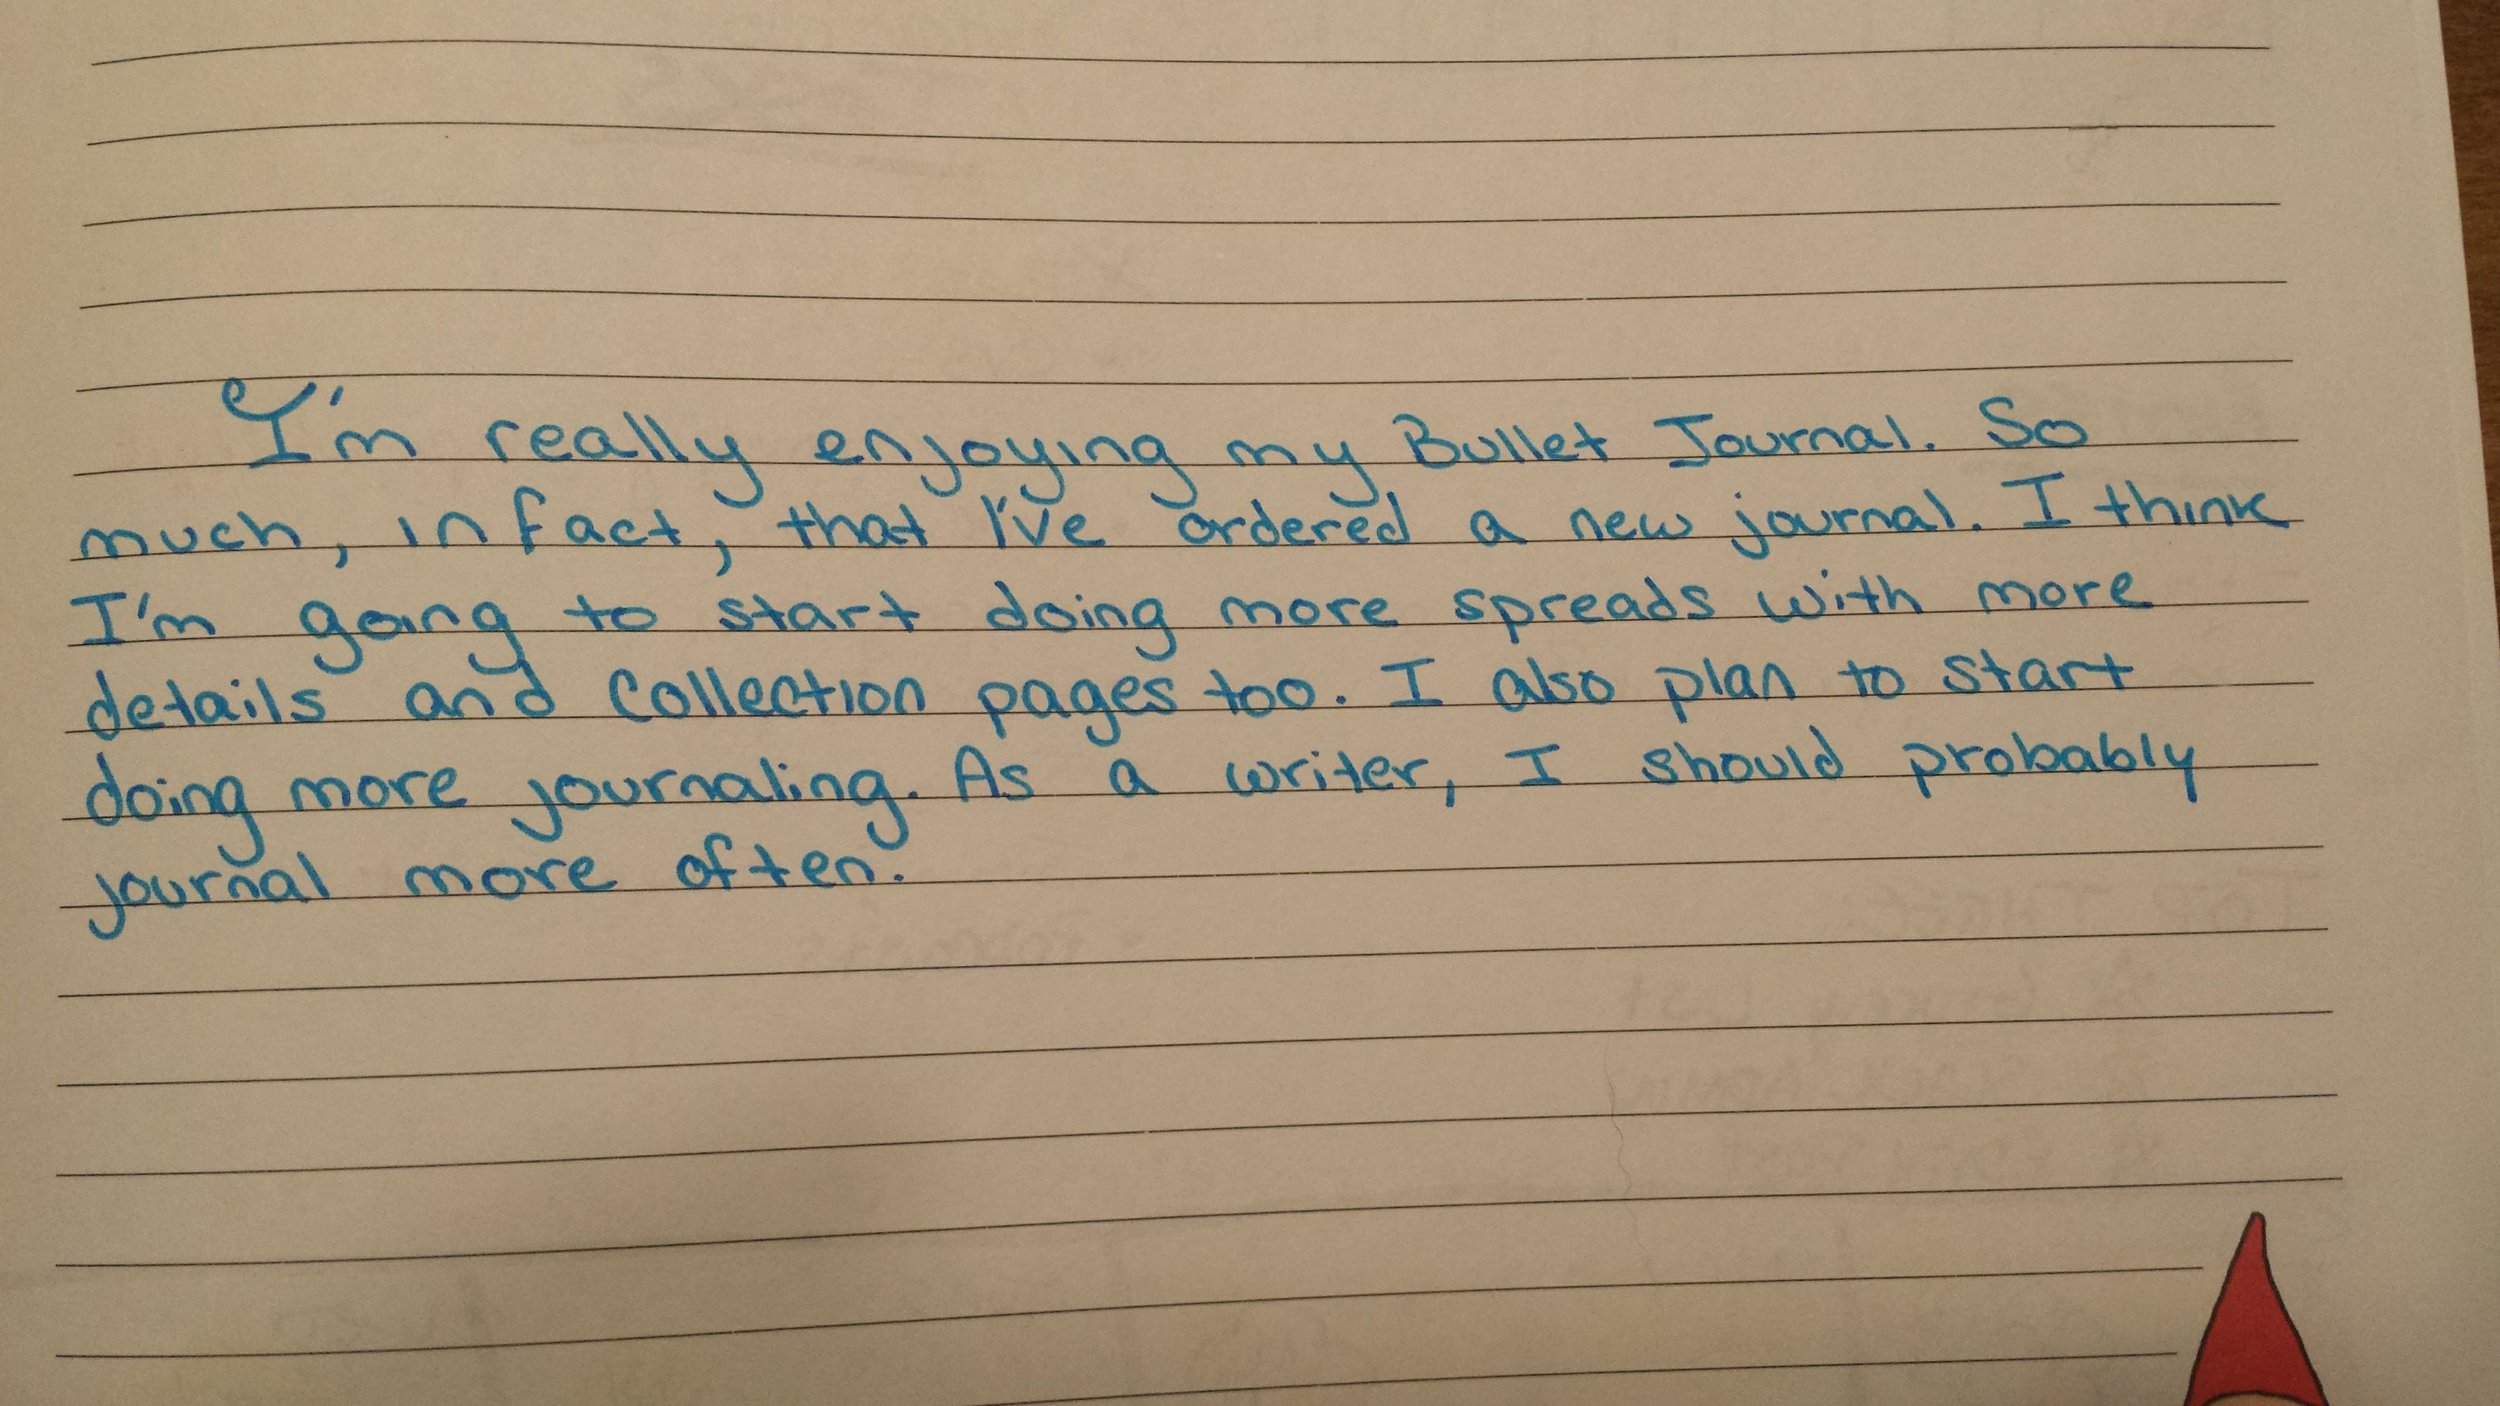 I'm really enjoying my Bullet Journal. So
much, in fact, that I've ordered a new journal. I think
I'm going to start doing more spreads with more
details and Collection pages too. I also plan to start
doing more journaling. As a writer, I should probably
journal more often.